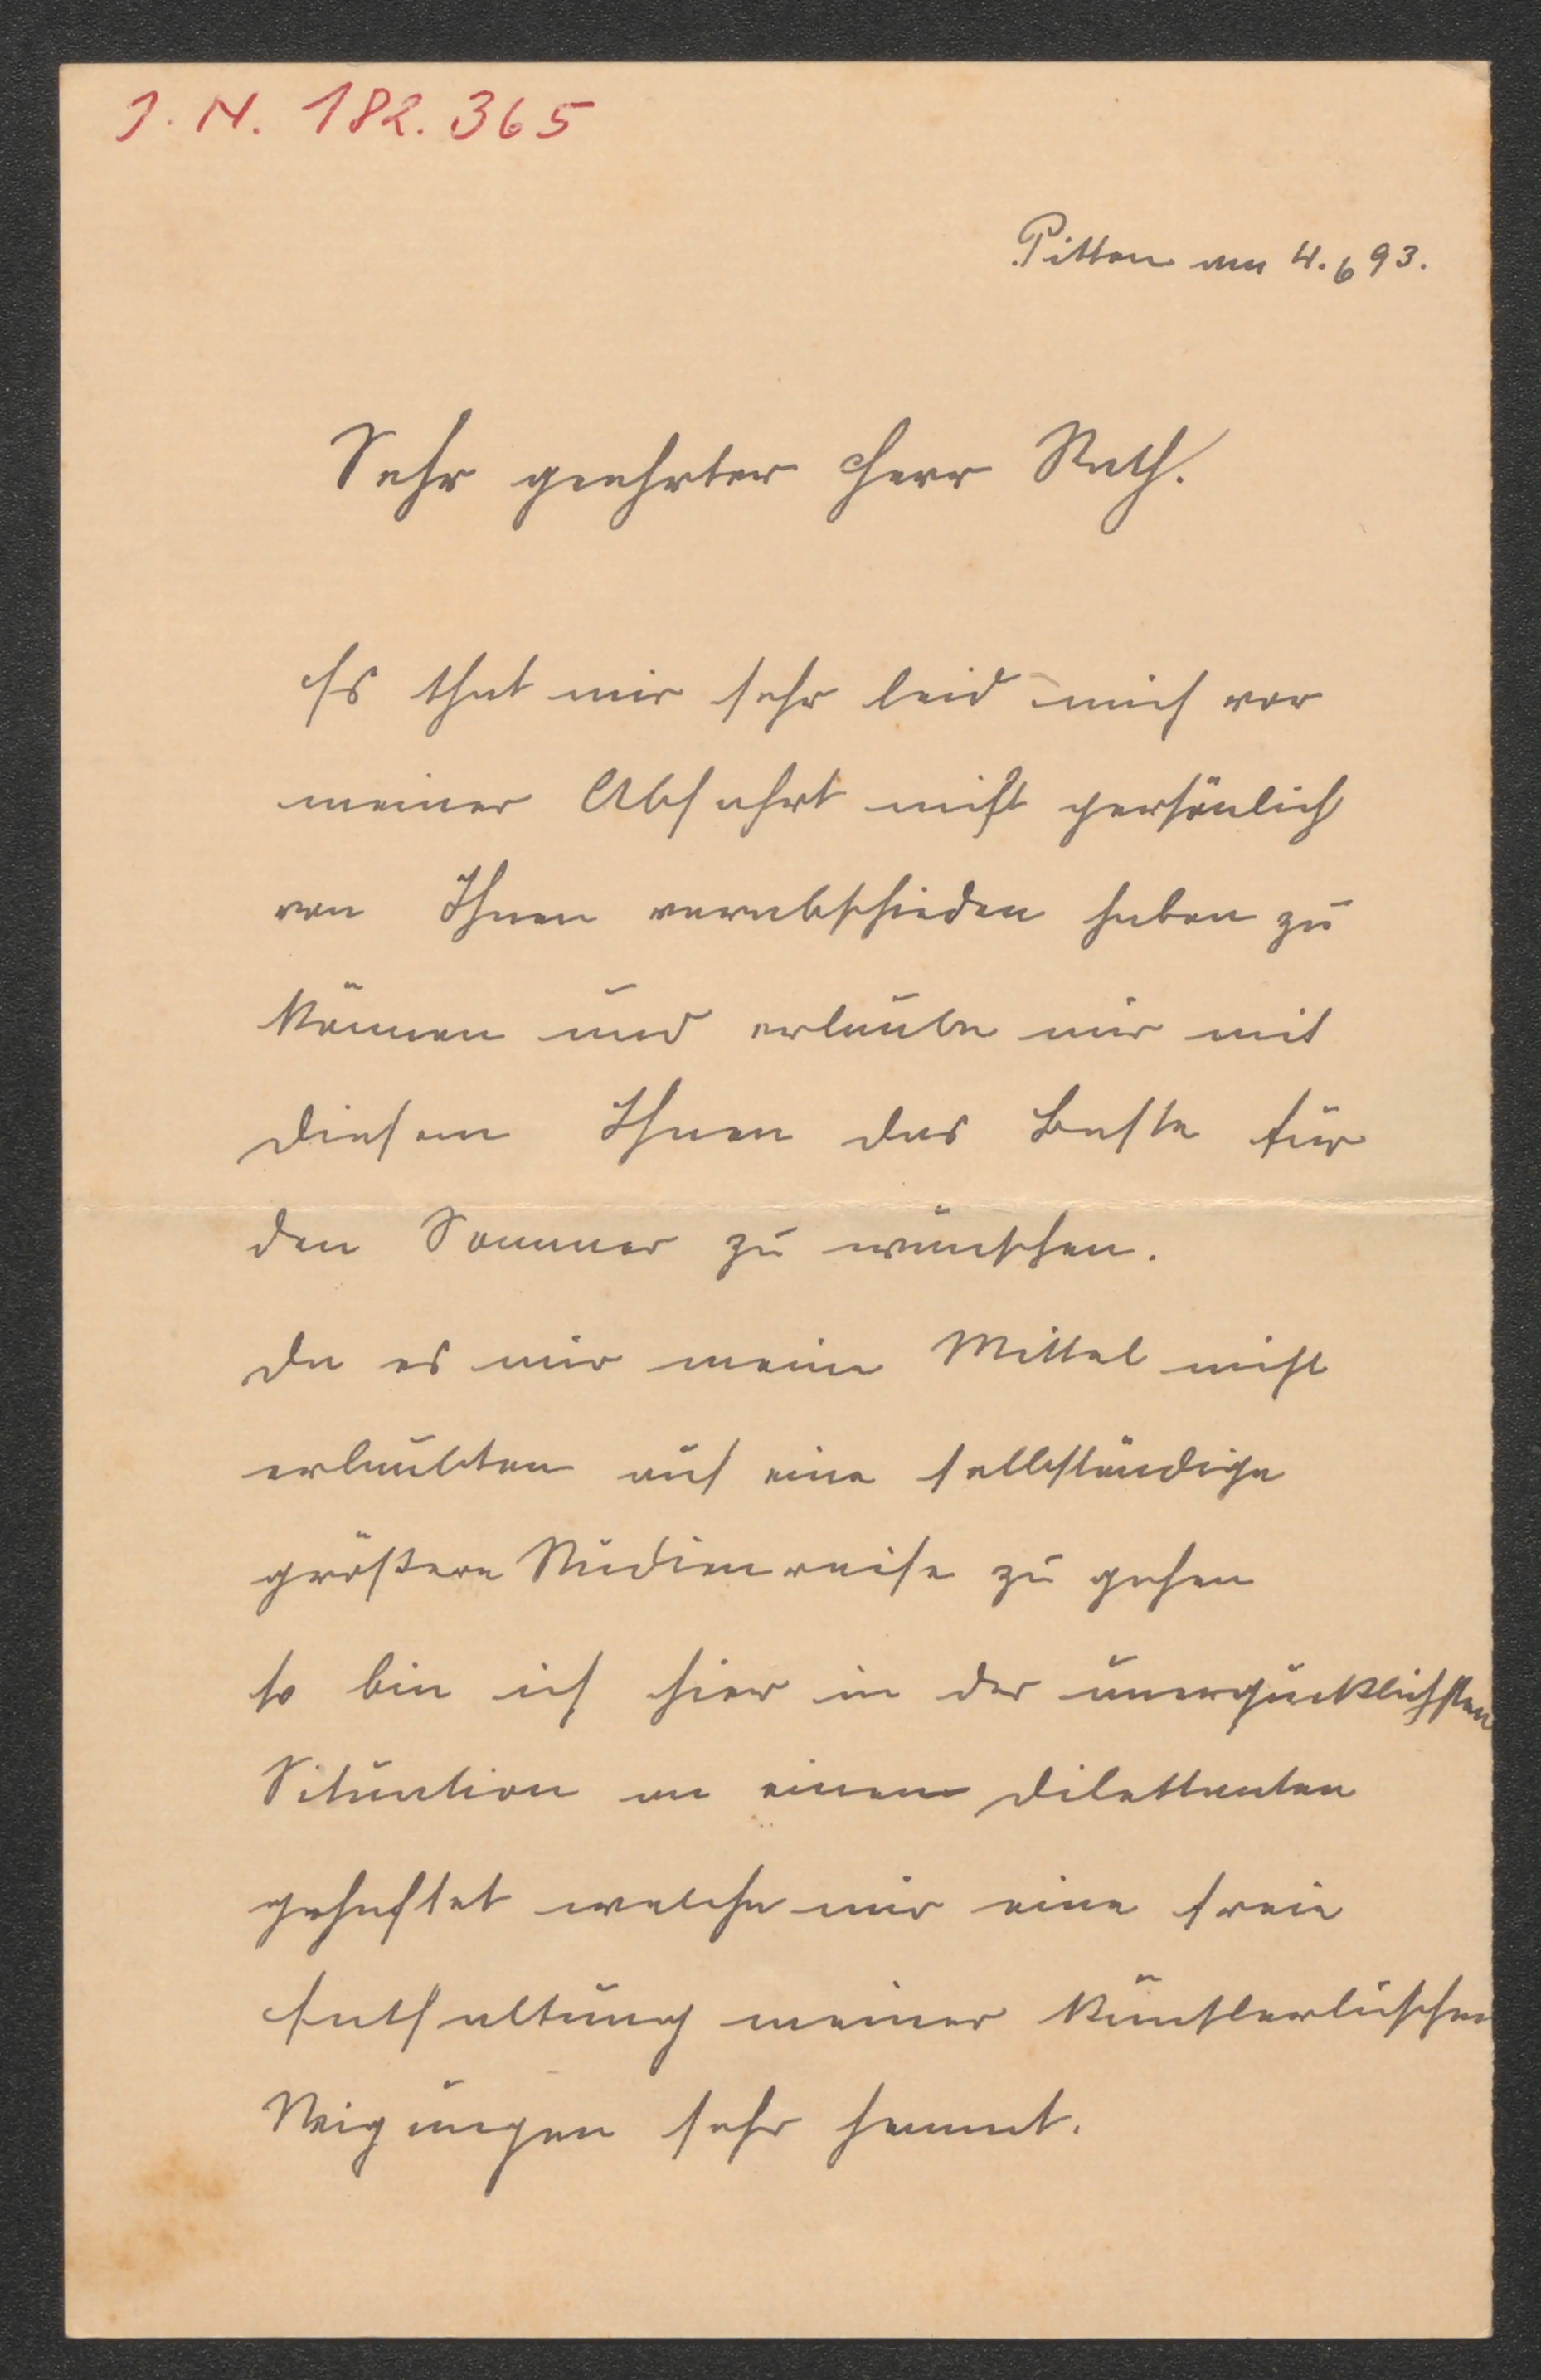 J. N. 182.365
Pitten am 4. 6 93.
Sehr geehrter Herr Rath.
Es that mir sehr leid mich vor
meiner Abfahrt nicht persönlich
von Ihnen verabschieden haben zu
können und erlaube mir mit
diesem Ihnen das Beste für
den Sommer zu wünschen.
Da es mir meine Mittel nicht
erlaubten auf eine selbständige
größere Studienreise zu gehen
so bin ich hier in der unerquicklichsten
Situation an einem Dilettanten
gehaftet welche mir eine freie
Entfaltung meiner künstlerlischen
Neigungen sehr hemmt.